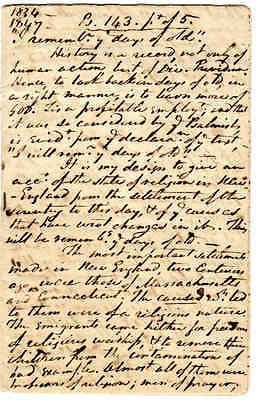 1834
1847
P. 143. p. of 5.
"I remember ye days of old"
History is a record not only of
human action but of Div. Provid.
Hence to look back on days of old, in
a right manner, is to have more of
God. It is a profitable employt, and that
it was so considered by ye Psalmist,
is evidt from ye declaratn of ye text
I will rem. ye days of old &c.
It is my design to give an
acct. of the state of religion in New
England from the settlement of the
country to this day, & of ye causes
that have wrot changes in it. They
will be rememb. ye days of old.
The most important settlements
made in New England two Centuries
ago were those of Massachusetts
and Connecticut. The causes led
to them were of a religious nature.
The emigrants came hither for freedom
of religious worship, & to remove their
children from the contamination of
bad example. Almost all of them were
professors of religion; men of prayer,